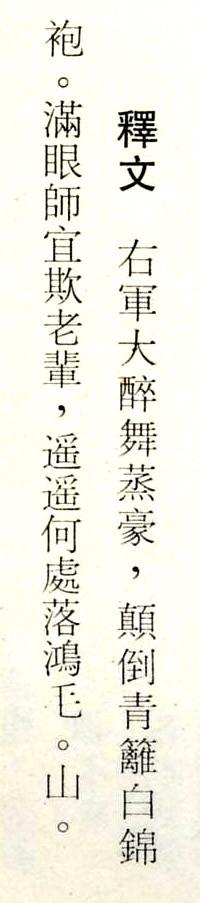 釋文　右軍大醉舞蒸豪，顛倒青籬白錦
袍。滿眼師宜欺老輩，遥遥何處落鴻毛。山。